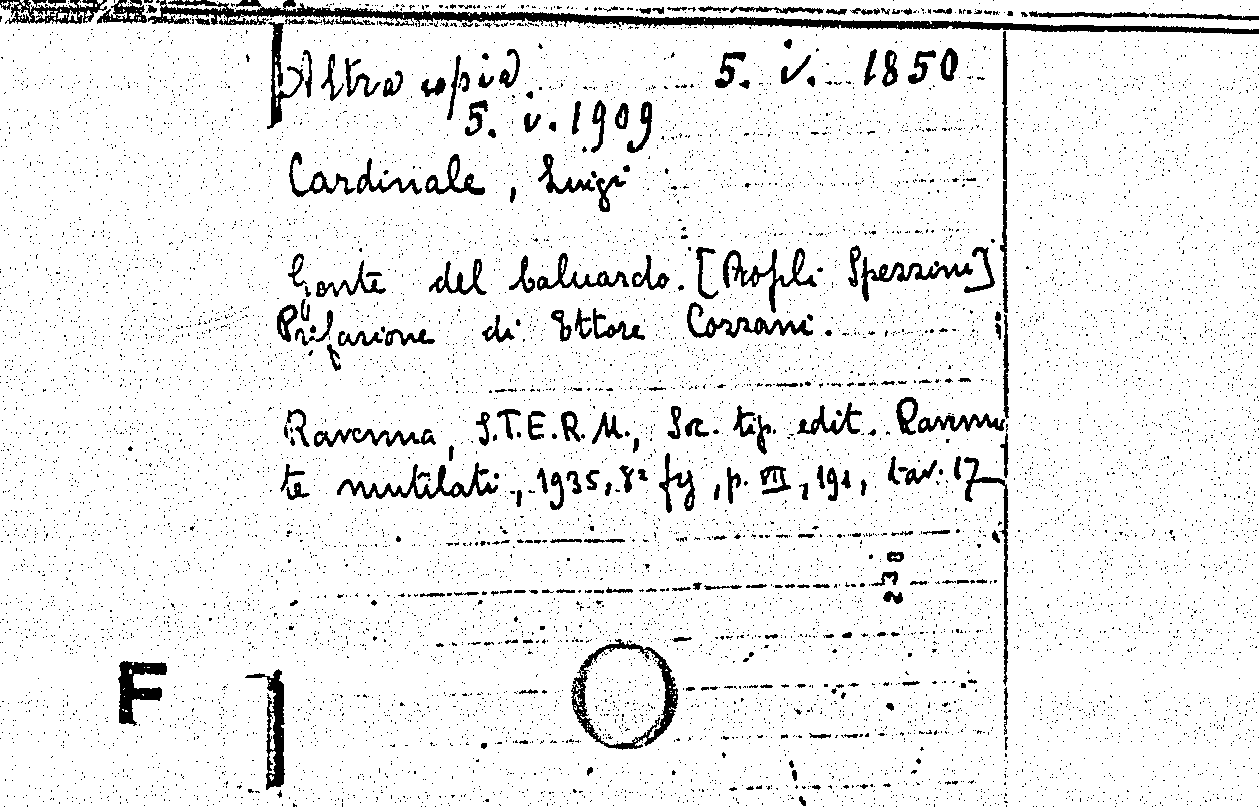 Altra copia. 5. i. 1850
5. i. 1909
Cardinale, Luigi
Gente del baluardo. [Profili Spezzini]
Prefazione di Ettore Cozzani.
Ravenna, S.T.E.R.M., Soc. tip. edit. Ravenna
te mutilati, 1935, 8° fig, p. VIII, 191, tav. 17
230
F